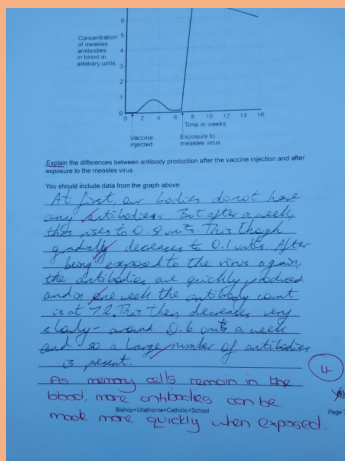 6
Concentration
of measles 5
antibodies
in blood in 4
arbitrary units
3
2
1
0
0 2 4 6 8 10 12 14 16
Time in weeks
Vaccine Exposure to
injected measles virus
Explain the differences between antibody production after the vaccine injection and after
exposure to the measles virus.
You should include data from the graph above
At first, our bodies do not have
any antibodies. But after a week,
this rises to 0.8 units. This though
gradually decreases to 0.1 units. After
being exposed to the virus again,
the antibodies are quickly produced
and in one week the antibody count
is at 7.2. This then decreases very
slowly - around 0.6 units a week
and so a large number of antibodies
is present.
4
As memory cells remain in the
blood, more antibodies can be
made more quickly when exposed.
Bishop+Ullathorne+Catholic+School
Page